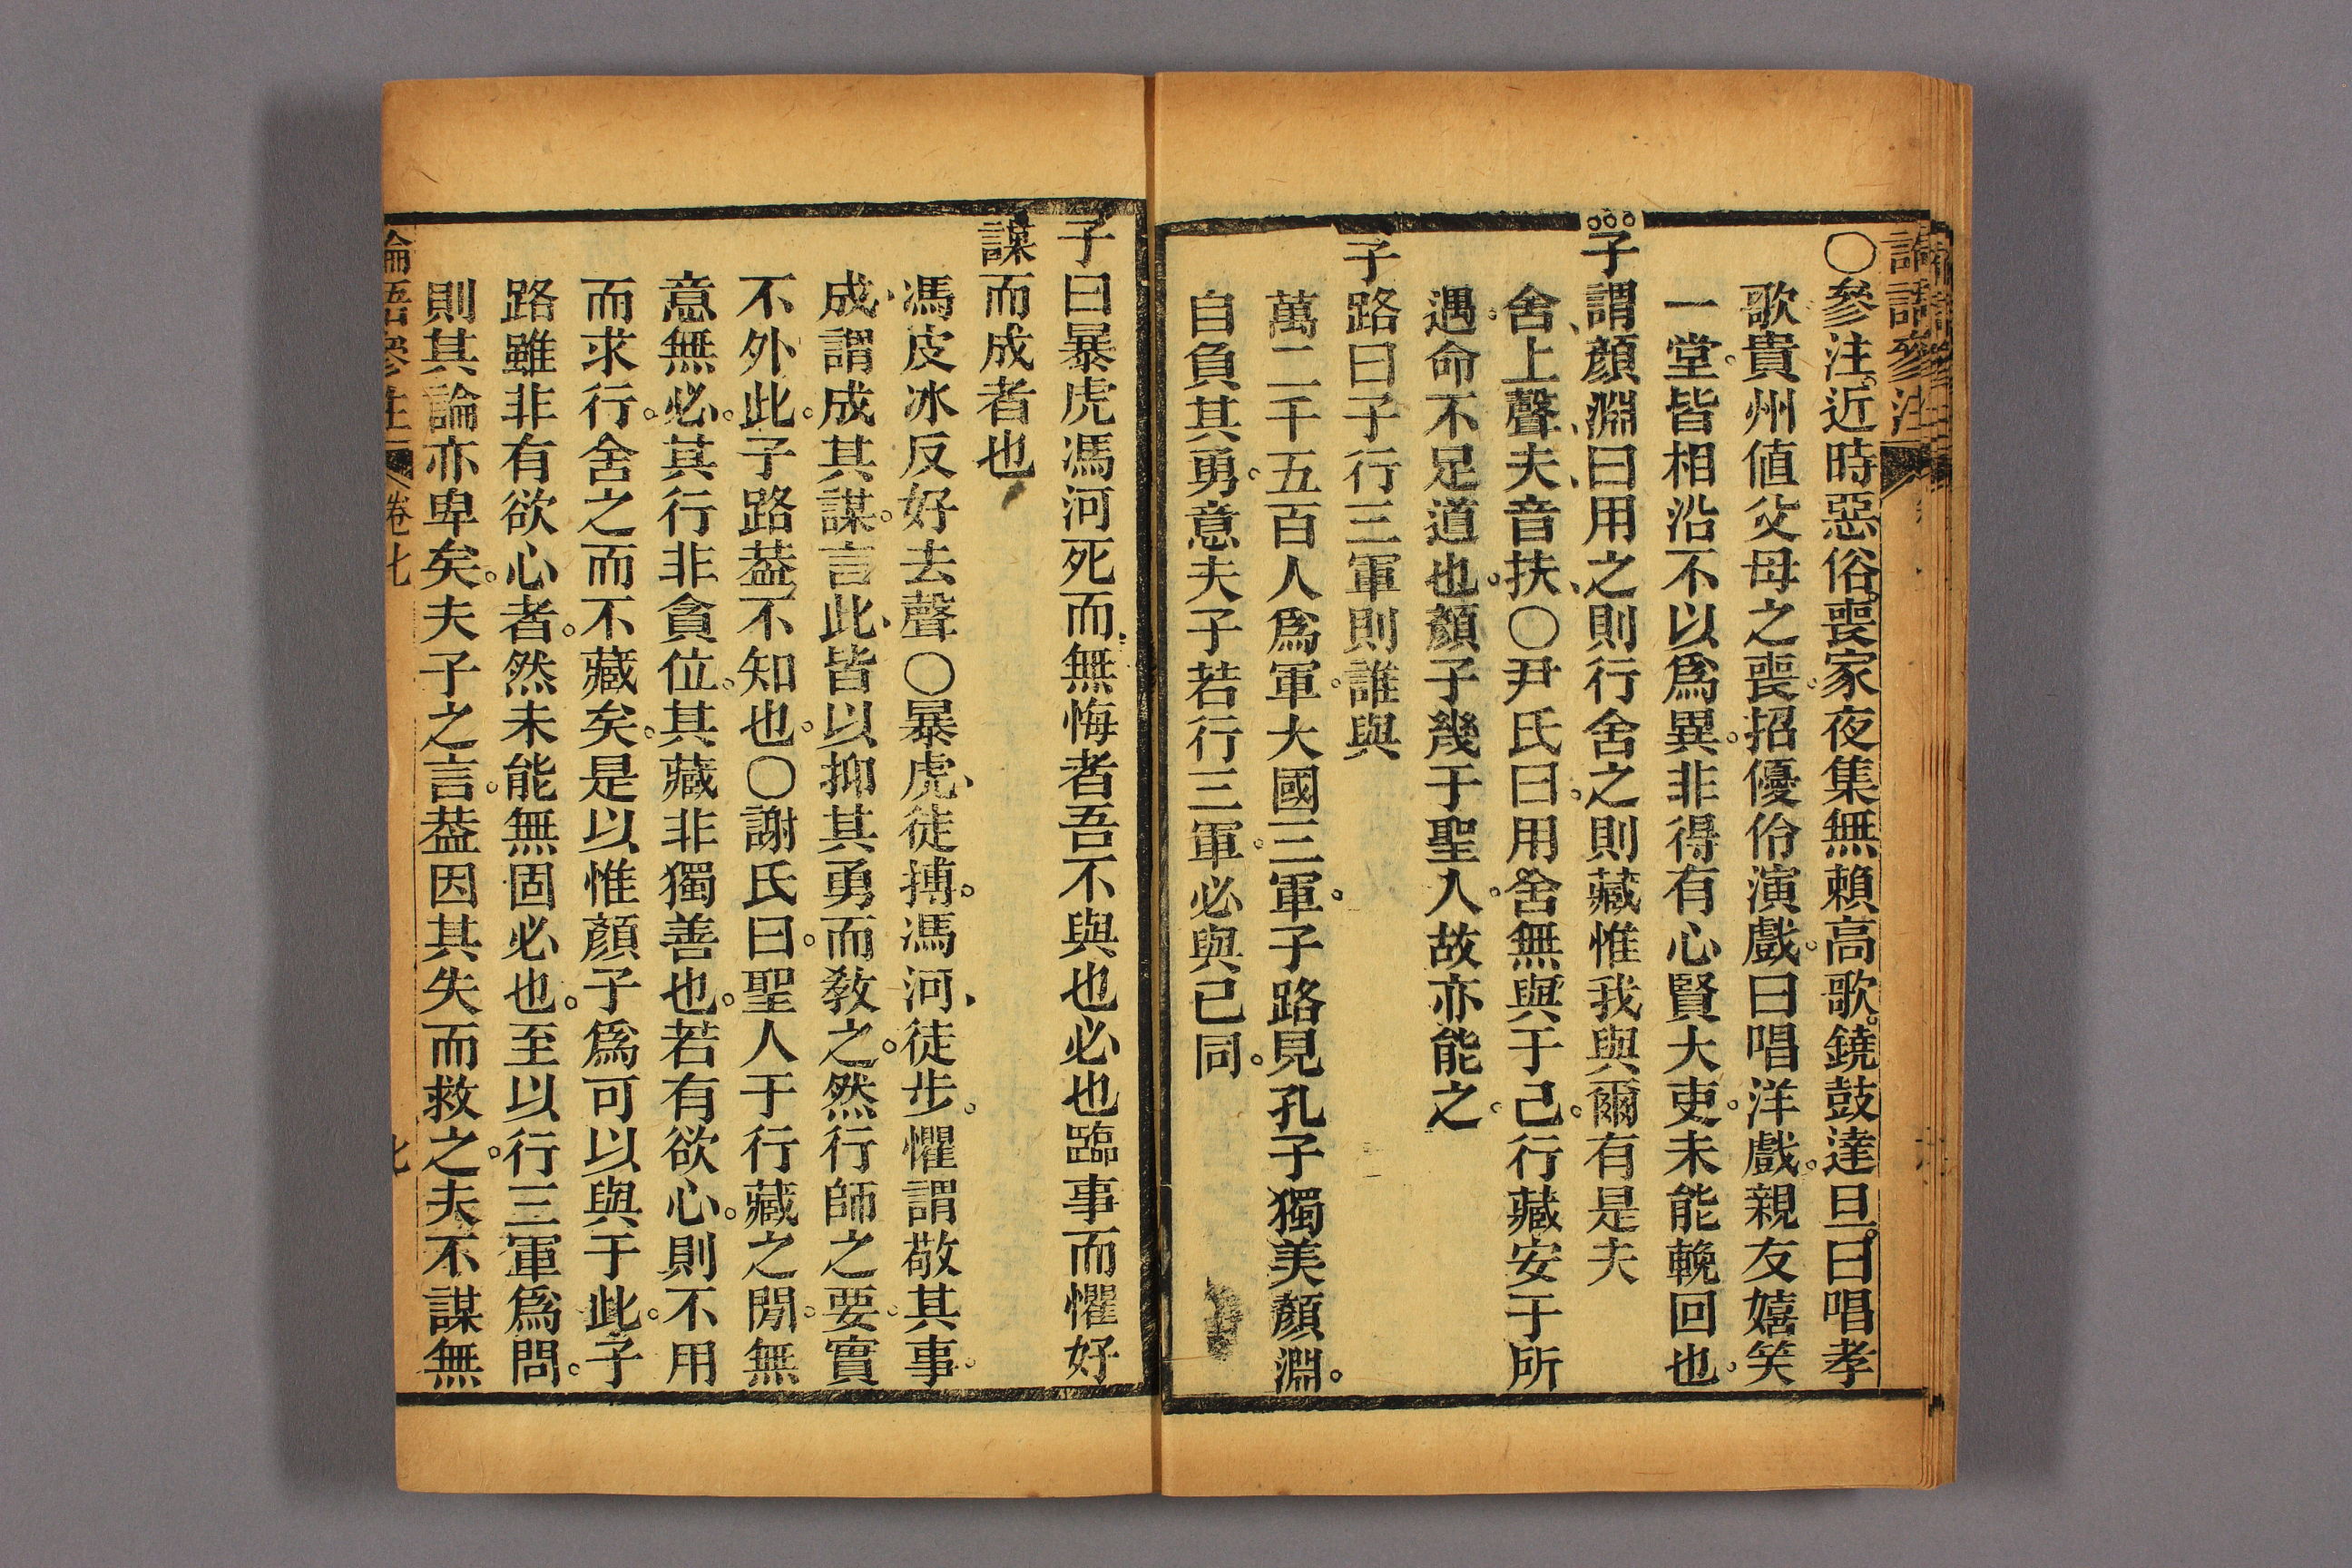 論語參注
〇參注。近時惡俗。喪家夜集無賴高歌。鐃鼓達旦。曰唱孝
歌貴州値父母之喪。招優伶演戲。曰唱洋戲。親友嬉笑
一堂。皆相沿不以爲異。非得有心賢大吏。未能輓回也。
子謂顏淵曰用之則行舍之則藏惟我與爾有是夫
舍、上聲、夫、音扶、〇尹氏曰。用舍無與于己。行藏安于所
遇。命不足道也。顏子幾于聖人。故亦能之。
子路曰子行三軍則誰與
萬二千五百人爲軍。大國三軍。子路見孔子獨美顏淵。
自負其勇。意夫子若行三軍。必與己同。
子曰暴虎馮河死而無悔者吾不與也必也臨事而懼好
謀而成者也
馮皮冰反好去聲〇暴虎、徒搏。馮河、徒步。懼謂敬其事。
成、謂成其謀。言此、皆以抑其勇而敎之。然行師之要。實
不外此。子路葢不知也。〇謝氏曰。聖人于行藏之閒。無
意無必。其行非貪位。其藏非獨善也。若有欲心。則不用
而求行。舍之而不藏矣。是以惟顏子爲可以與于此。子
路雖非有欲心者。然未能無固必也。至以行三軍爲問。
則其論亦卑矣。夫子之言。葢因其失而救之。夫不謀無
論語參注 卷七